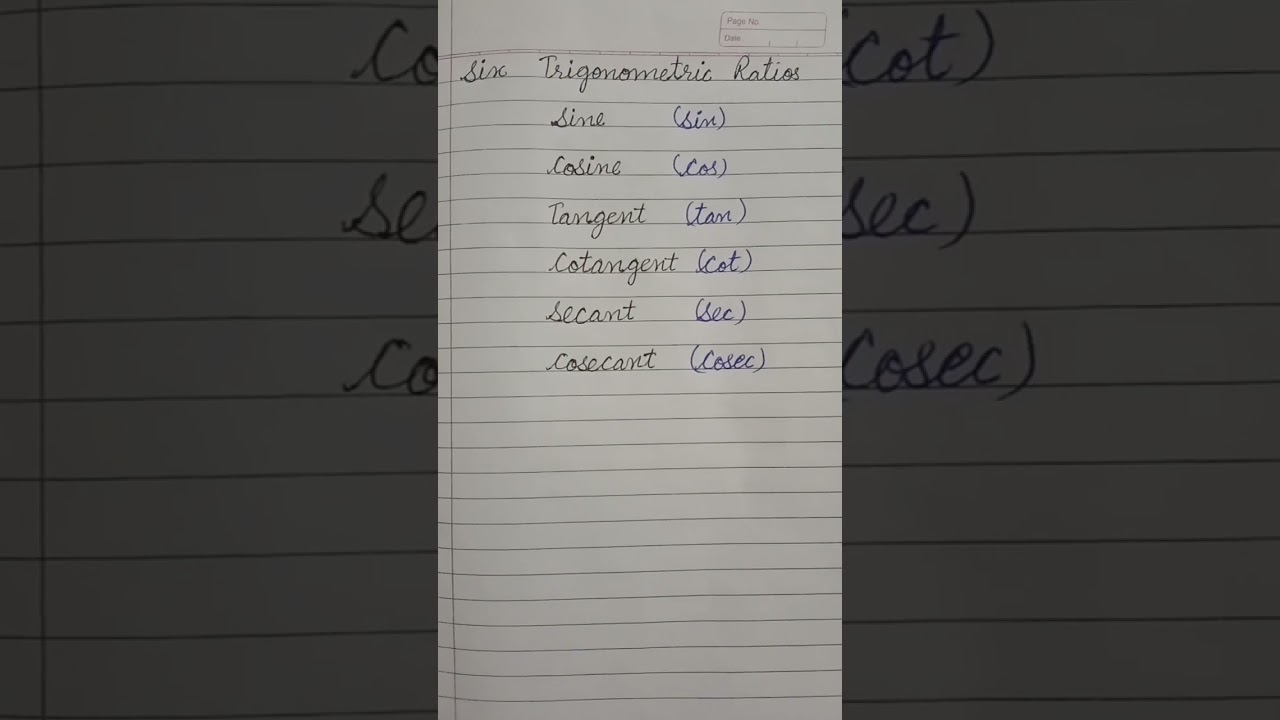 Page No
Date
Six Trigonometric Ratios
Sine (sin)
Cosine (cos)
Tangent (tan)
Cotangent (cot)
Secant (sec)
Cosecant (cosec)
Co
cot)
Se
sec)
Co
cosec)